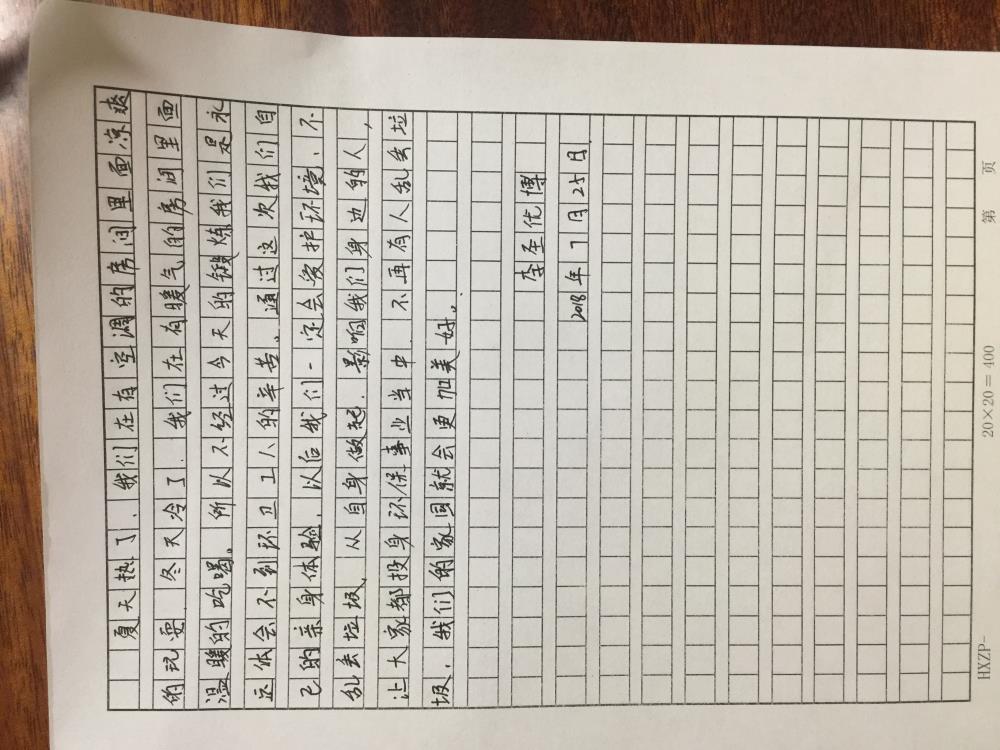 夏天热了、我们在有空调的房间里面凉爽
的玩耍.冬天冷了.我们在有暖气的房间里面
温暖的吃喝。所以不经过今天的锻炼我们是永
远体会不到环卫工人的辛苦.通过这次我们自
己的亲身体验.以后我们一定会爱护环境、不
乱丢垃圾.从自身做起.影响我们身边的人,
让大家都投身环保事业当中.不再有人乱丢垃
圾.我们的家园就会更加美好。
李圣优博
2018年7月25日.
HXZP-
20×20=400
第 页